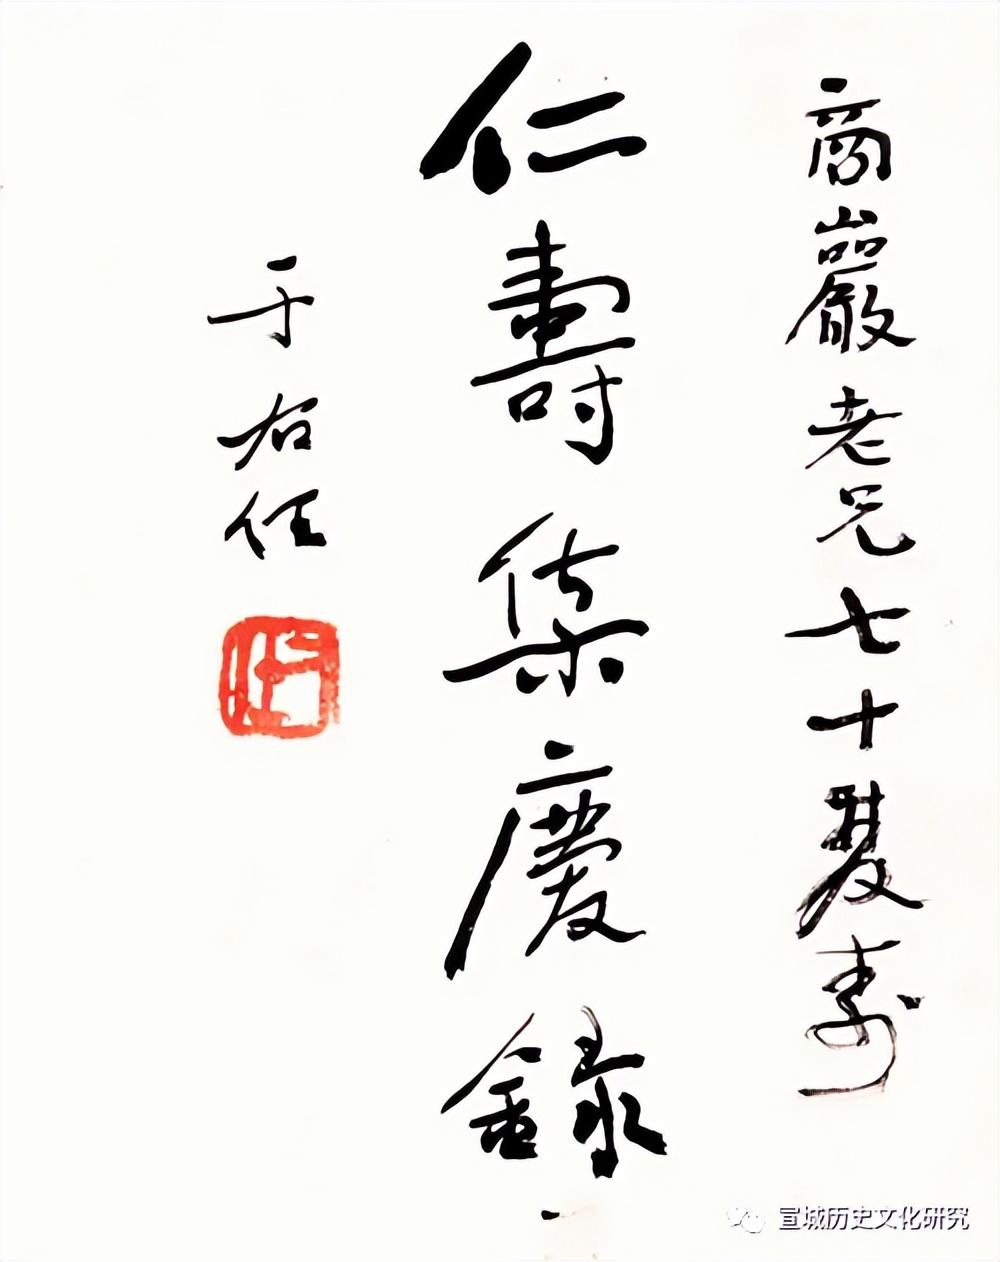 商巖老兄七十雙寿
仁壽集慶錄
于右任
宣城历史文化研究